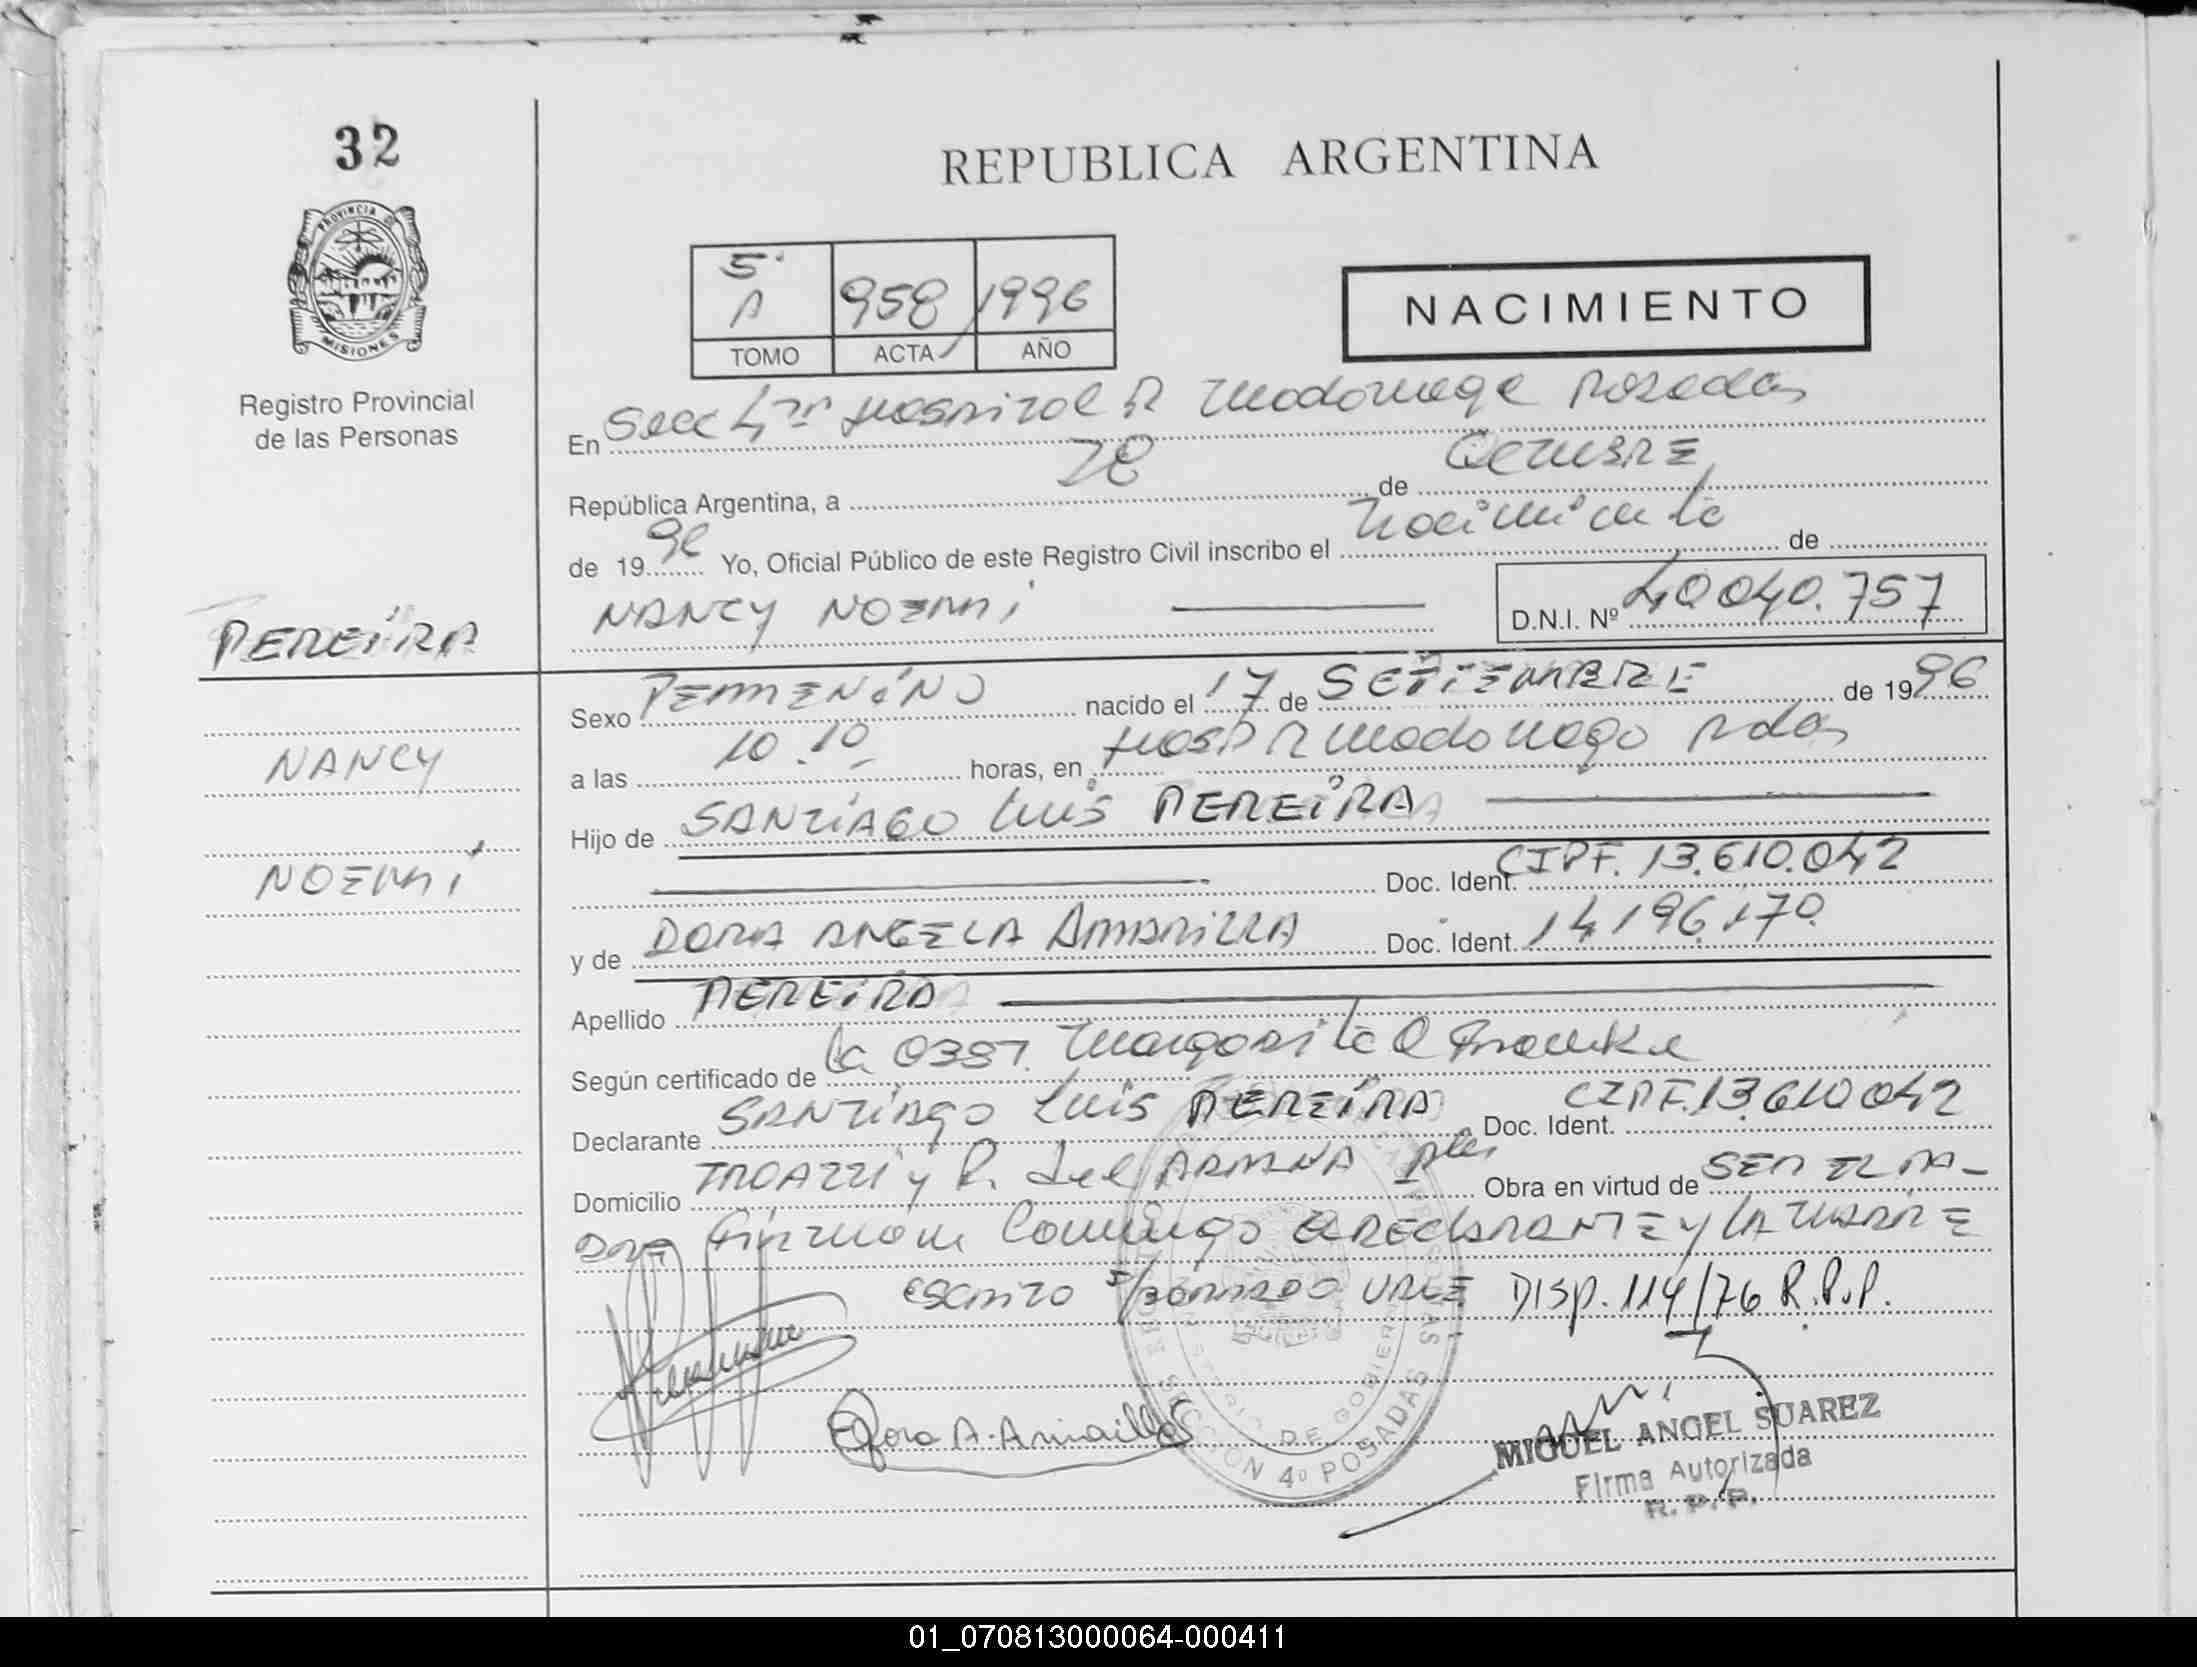 32
REPUBLICA ARGENTINA
PROVINCIA DE
MISIONES
Registro Provincial
de las Personas
5º
A 958 1996
TOMO ACTA AÑO
NACIMIENTO
En Secc 4ta Hospital R Madariaga Posadas
República Argentina, a 28 de OCTUBRE
de 1996 Yo, Oficial Público de este Registro Civil inscribo el Nacimiento de
NANCY NOEMI D.N.I. Nº 40.040.757
PEREIRA
NANCY
NOEMI
Sexo FEMENINO nacido el 17 de SETIEMBRE de 1996
a las 10.10 horas, en Hosp R Madariaga Pdas
Hijo de SANTIAGO Luis PEREIRA
Doc. Ident. CIPF. 13.610.042
y de DORA ANGELA AMARILLA Doc. Ident. 14.196.170
Apellido PEREIRA
Según certificado de la OBST. Margarita
Declarante SANTIAGO Luis PEREIRA Doc. Ident. CIPF.13.610.042
Domicilio y Obra en virtud de SER EL PA-
DRE Firman Conmigo El DECLARANTE y LA MADRE
ESCRITO s/BORRADO VALE DISP. 114/76 R.P.P.
Dora A. Amarilla
SECCION 4º POSADAS
DE GOBIERNO
MIGUEL ANGEL SUAREZ
Firma Autorizada
R. P. P.
01_070813000064-000411